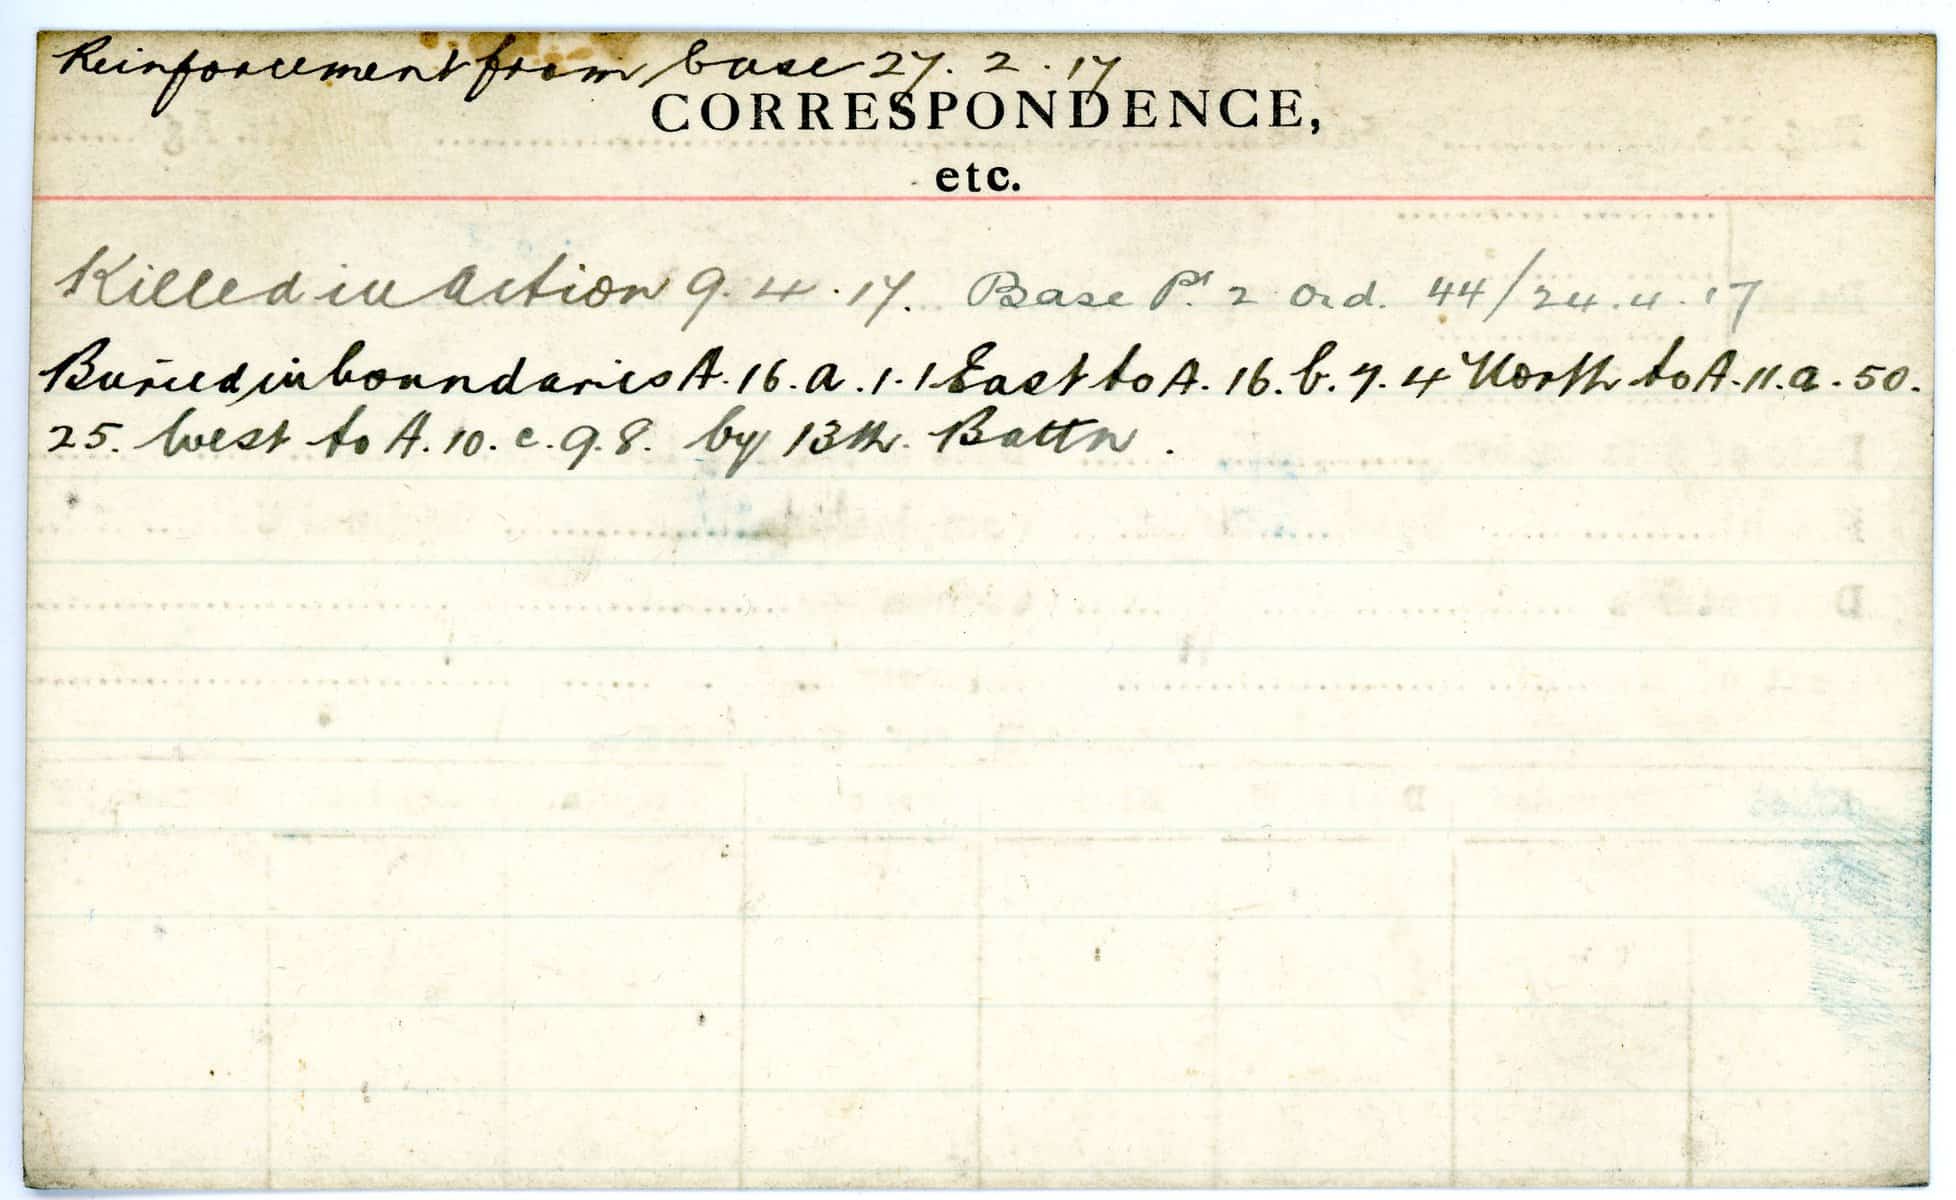 Reinforcement from base 27. 2. 17
CORRESPONDENCE,
etc.
Killed in Action 9. 4. 17. Base Pt 2 Ord. 44/24.4.17
Buried in boundaries A. 16. a. 1. 1 East to A. 16. b. 7. 4 North to A. 11. a. 50.
25. West to A. 10. c. 9. 8. by 13th. Battn.